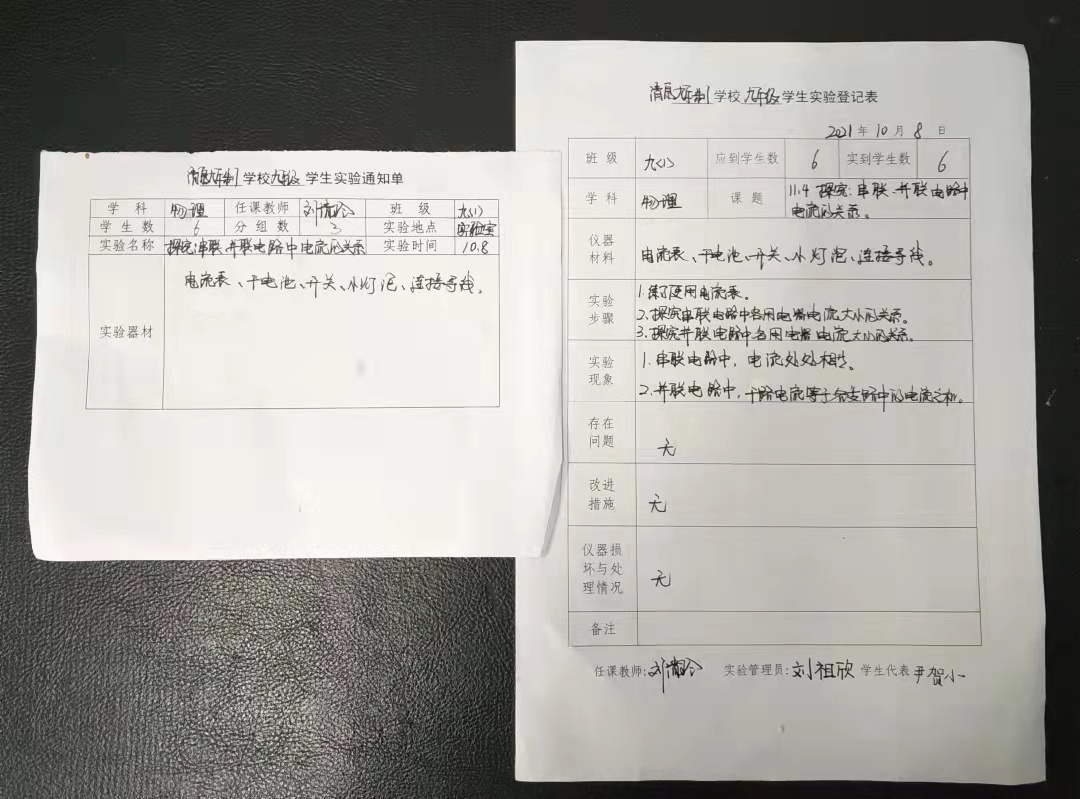 九年制学校九年级学生实验通知单
学科 物理 任课教师 刘 班级 九(1)
学生数 6 分组数 3 实验地点 实验室
实验名称 探究:串联、并联电路中电流的关系 实验时间 10.8
实验器材 电流表、干电池、开关、小灯泡、连接导线。
九年制学校九年级学生实验登记表
2021年10月8日
班级 九(1) 应到学生数 6 实到学生数 6
学科 物理 课题 11.4 探究:串联、并联电路中
电流的关系。
仪器材料 电流表、干电池、开关、小灯泡、连接导线。
实验步骤 1.练习使用电流表。
2.探究串联电路中各用电器电流大小的关系。
3.探究并联电路中各用电器电流大小的关系。
实验现象 1.串联电路中,电流处处相等。
2.并联电路中,干路电流等于各支路中的电流之和。
存在问题 无
改进措施 无
仪器损坏与处理情况 无
备注
任课教师:刘 实验管理员:刘祖欣 学生代表 尹贺小